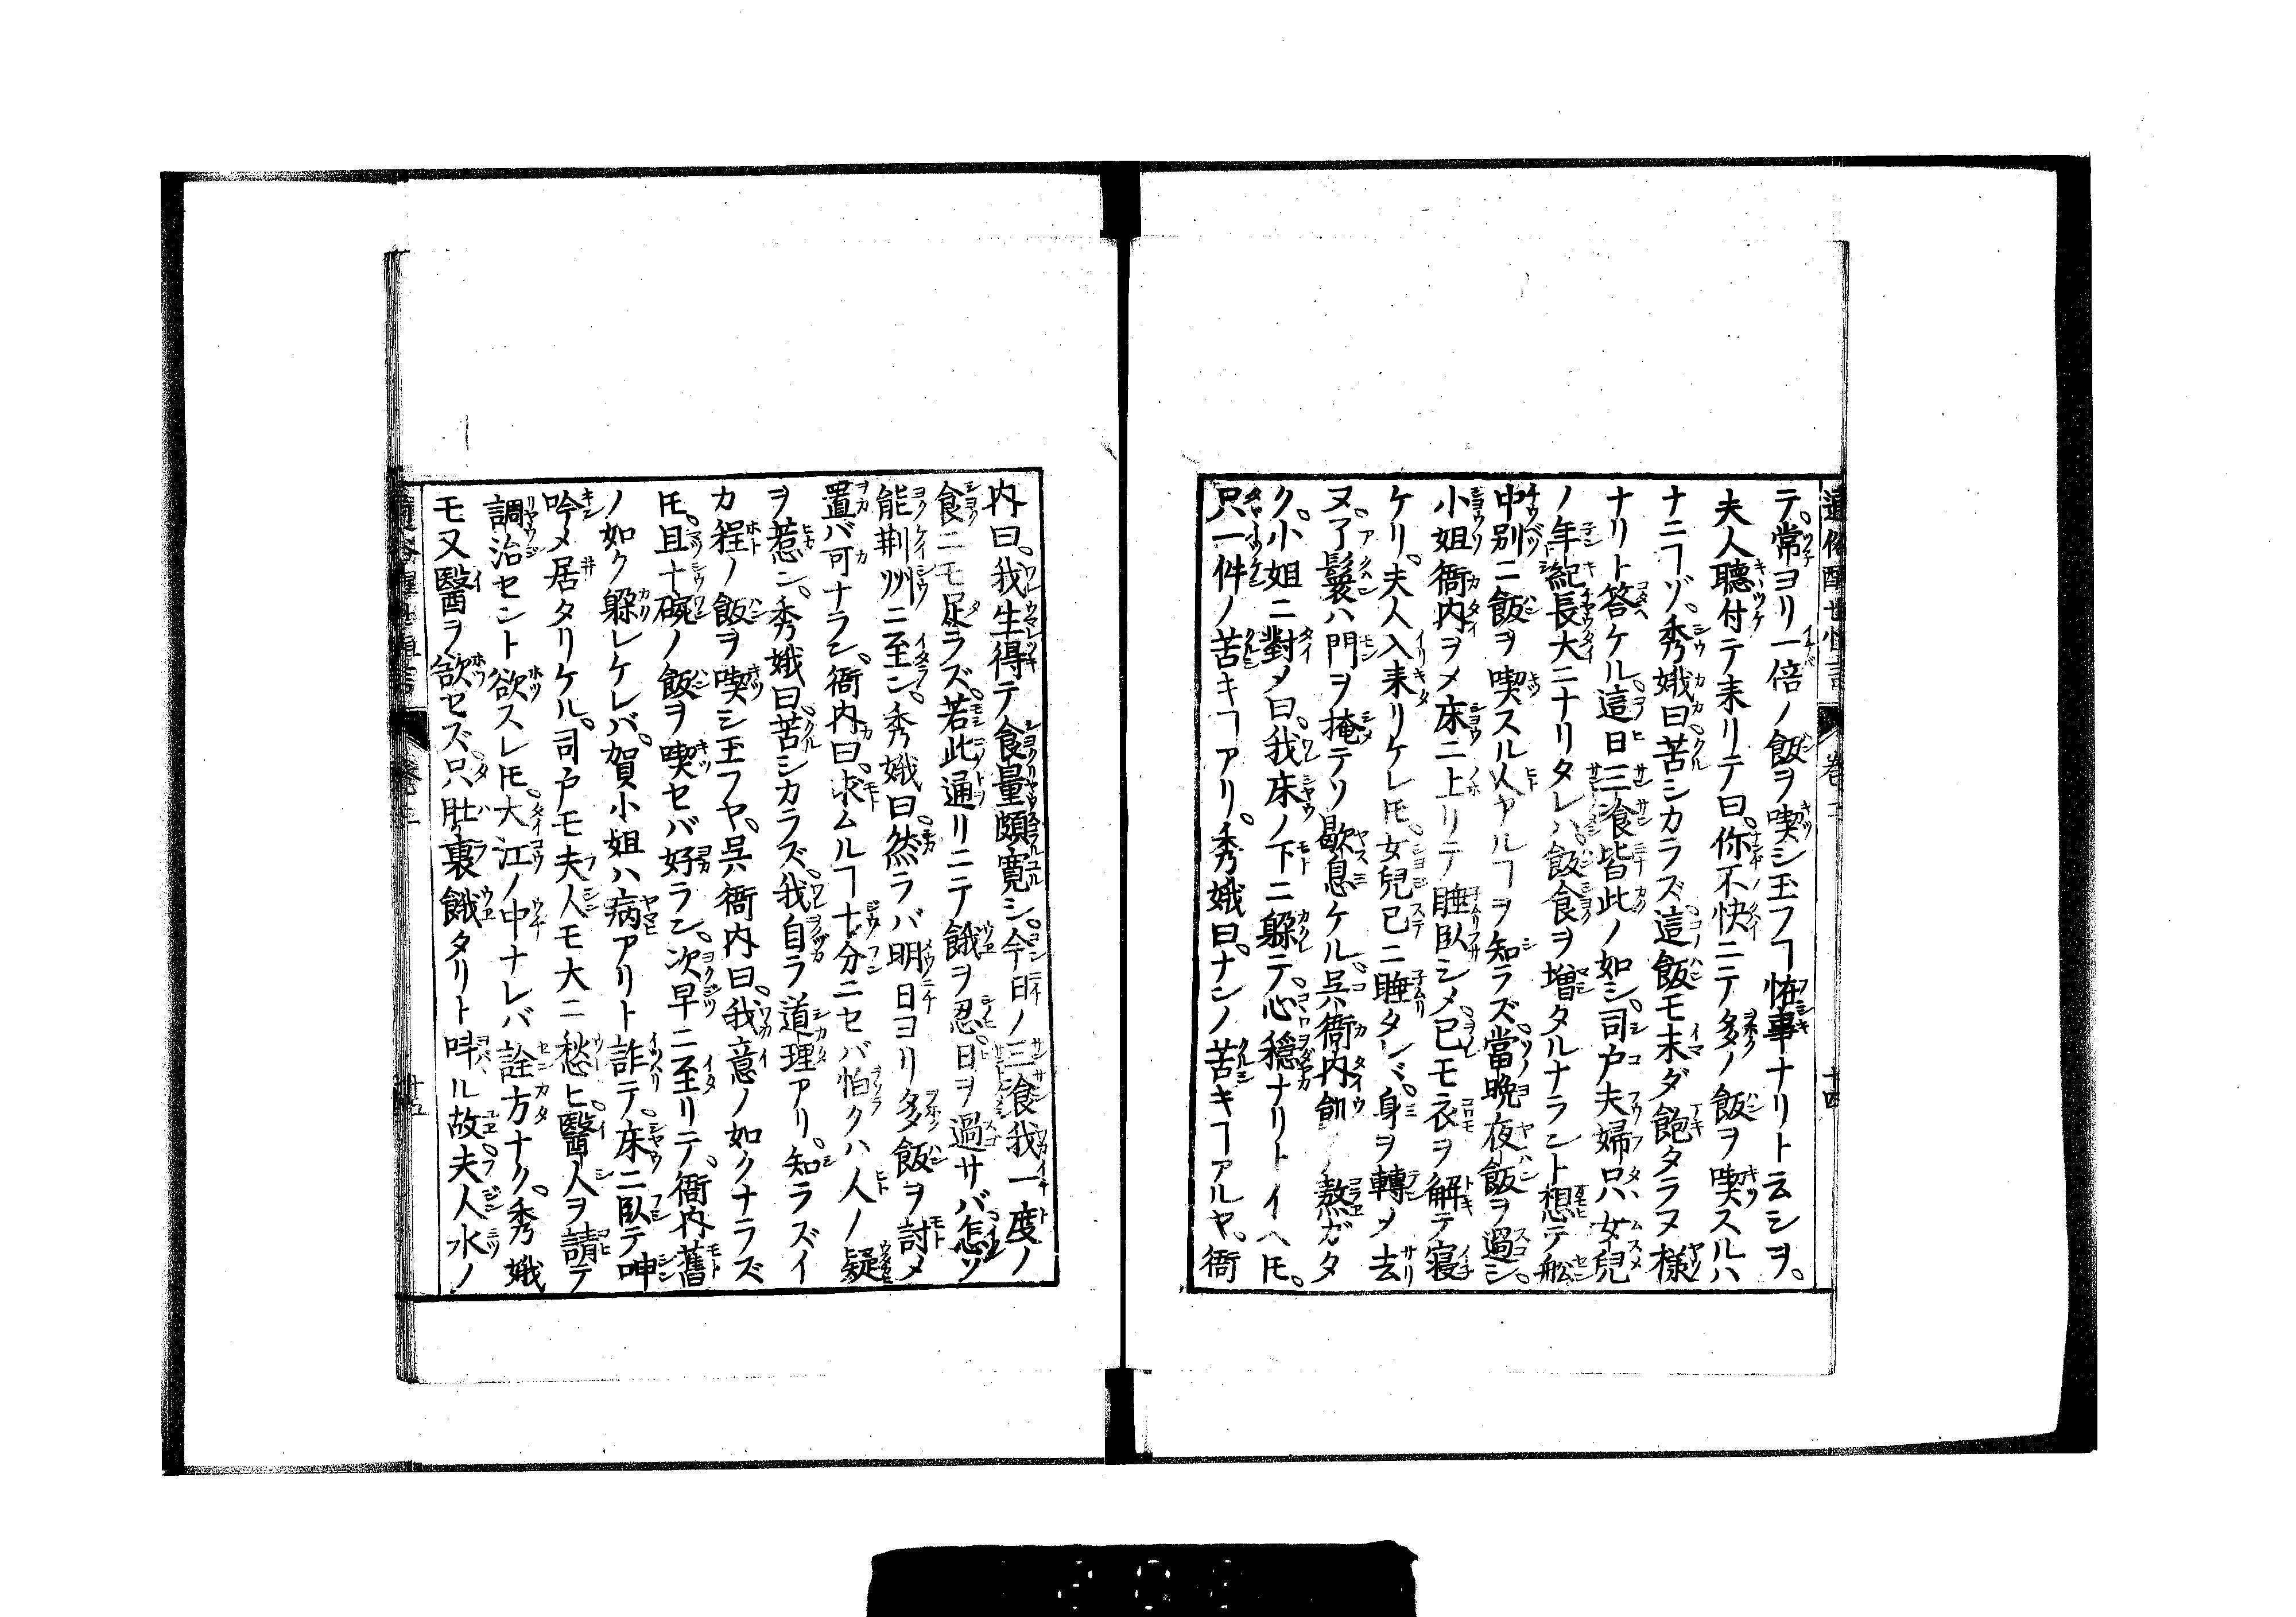 通俗醒世恒言 巻三 十四
テ。常ヨリ一倍ノ飯ヲ喫シ玉フヿ怪事ナリト云シヲ。
夫人聽付テ来リテ曰。你不快ニテ多ノ飯ヲ喫スルハ
ナニヿゾ。秀娥曰苦シカラズ這飯モ未ダ飽タラヌ様
ナリト答ケル。這日三飡皆此ノ如シ。司户夫婦只女兒
ノ年紀長大ニナリタレバ。飯食ヲ増タルナラント想テ舩
中別ニ飯ヲ喫スル人ヤルヿヲ知ラズ。當晩夜飯ヲ過シ。
小姐衙内ヲメ床ニ上リテ睡臥シメ。已モ衣ヲ解テ寝
ケリ。夫人入来リケレ𪜈。女兒已ニ睡タレバ。身ヲ轉メ去
ヌ。了鬟ハ門ヲ掩テリ歇息ケル。呉衙内飢ノ熬ガタ
ク。小姐ニ對メ曰。我床ノ下ニ躱テ。心穏ナリトイヘ𪜈。
只一件ノ苦キヿアリ。秀娥曰。ナンノ苦キヿアルヤ。衙
内曰。我生得テ食量頗寛シ。今日ノ三飡我一度ノ
食ニモ足ラズ。若此通リニテ餓ヲ忍。日ヲ過サバ。怎ゾ
能荆州ニ至ン。秀娥曰。然ラバ明日ヨリ多飯ヲ討メ
置バ可ナラン。衙内曰。求ムルヿ十分ニセバ怕クハ人ノ疑
ヲ惹ン。秀娥曰。苦シカラズ。我自ラ道理アリ。知ラズイ
カ程ノ飯ヲ喫シ玉フヤ。呉衙内曰。我意ノ如クナラズ
𪜈。且十碗ノ飯ヲ喫セバ好ラン。次早ニ至リテ。衙内舊
ノ如ク躱レケレバ。賀小姐ハ病アリト詐テ。床ニ臥テ呻
吟メ居タリケル。司户モ夫人モ大ニ愁ヒ。醫人ヲ請テ
調治セント欲スレ𪜈。大江ノ中ナレバ詮方ナク。秀娥
モ又醫ヲ欲セズ。只肚裏餓タリト呌ル故。夫人水ノ